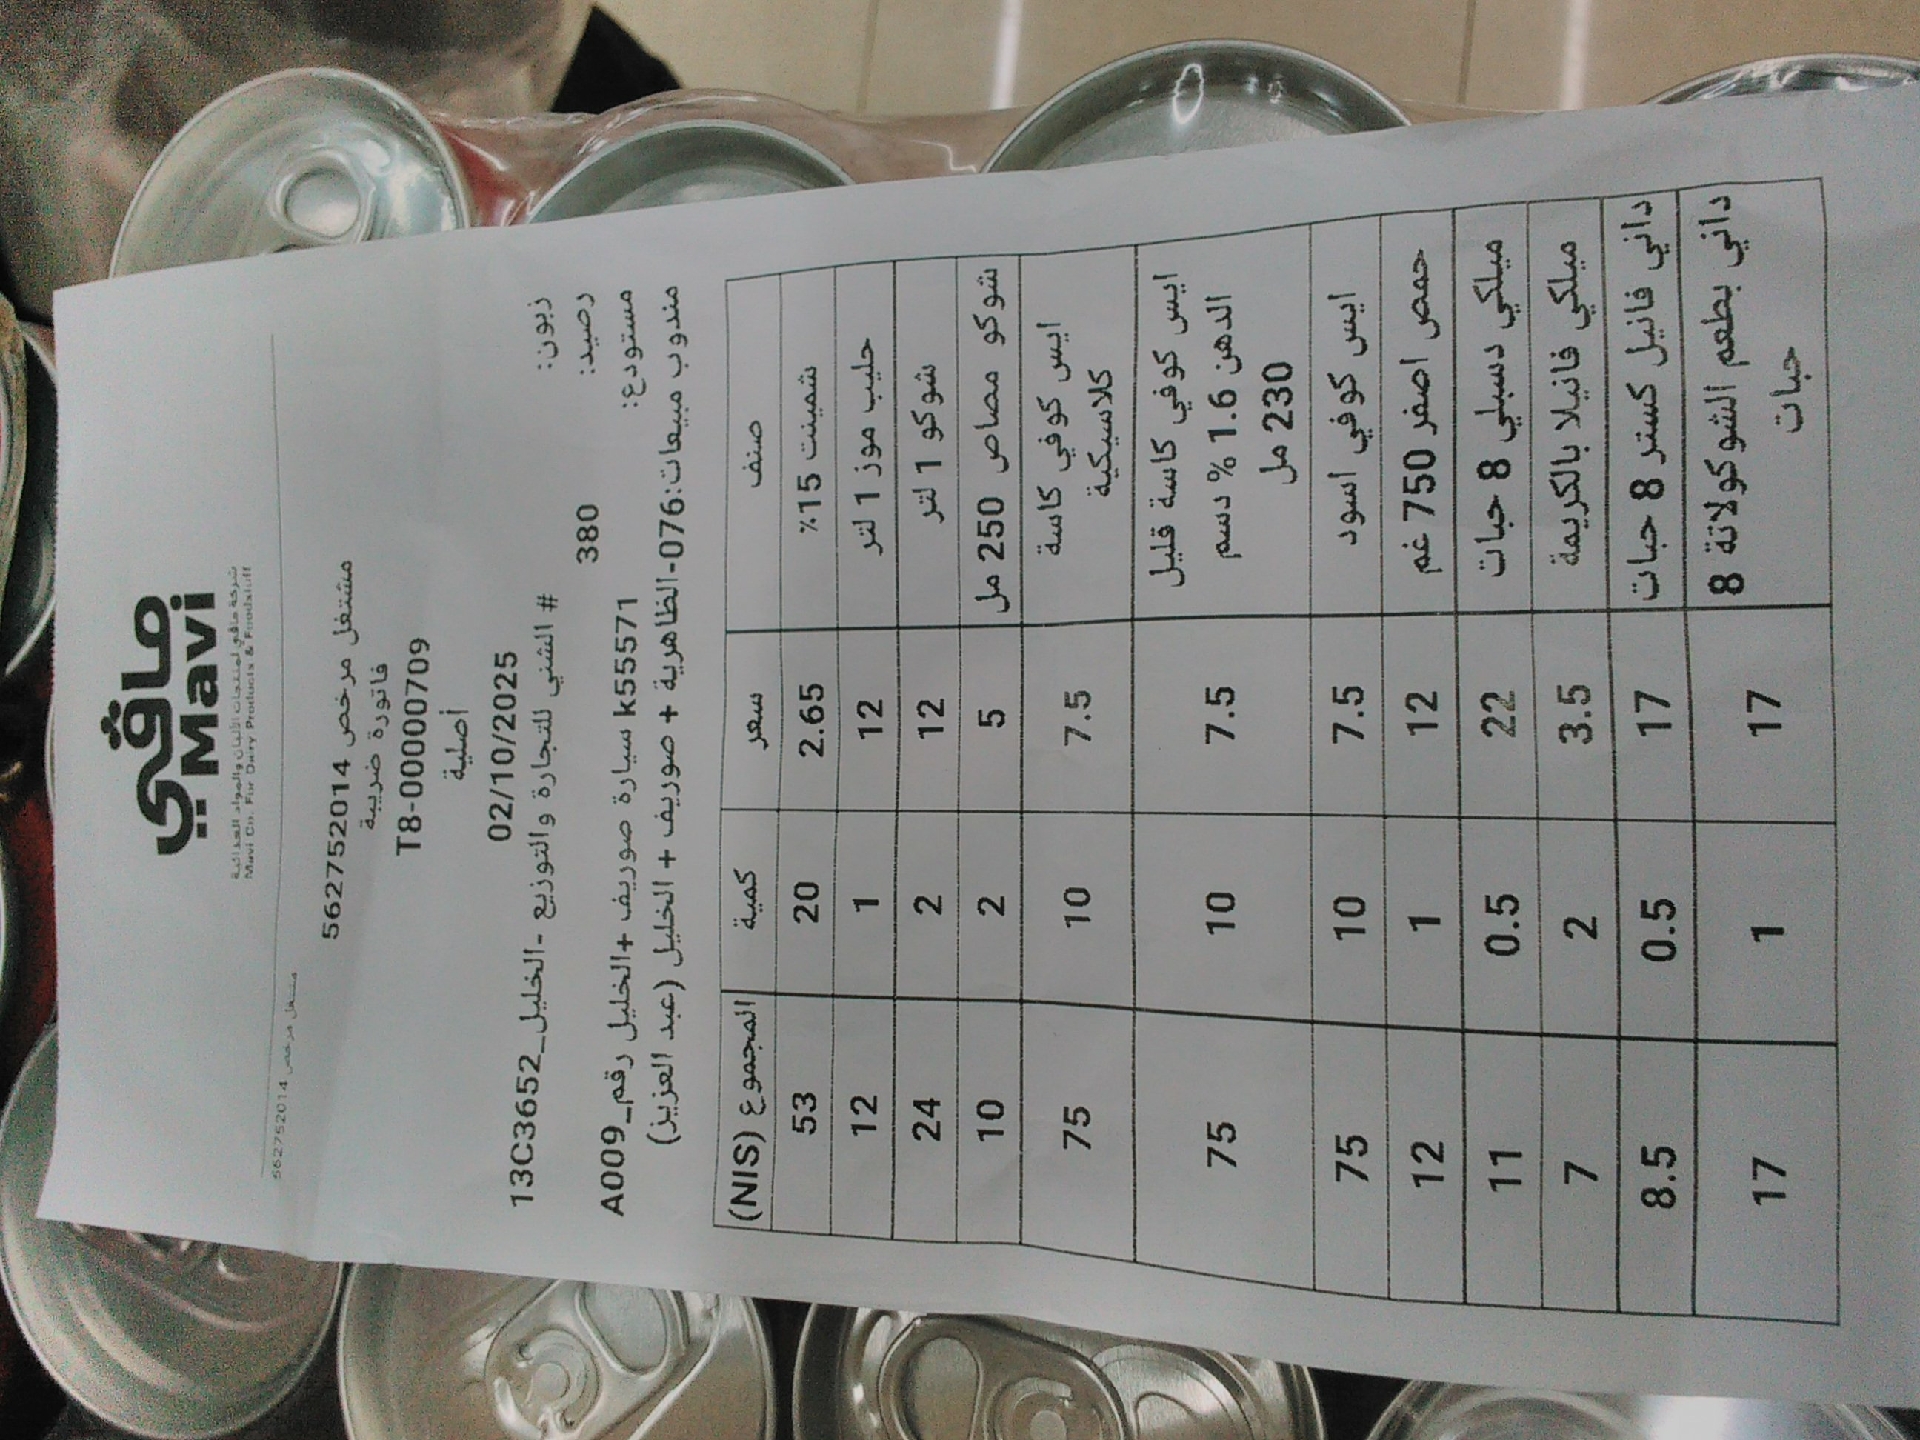 مافي
Mavi
شركة مافي لمنتجات الألبان والمواد الغذائية
Mavi Co. For Dairy Products & Foodstuff
مشتغل مرخص 562752014
مشتغل مرخص 562752014
فاتورة ضريبة
T8-00000709
أصلية
02/10/2025
زبون: # الشني للتجارة والتوزيع -الخليل_13C3652
رصيد: 380
مستودع: k55571 سيارة صوريف +الخليل رقم_A009
مندوب مبيعات:076-الظاهرية + صوريف + الخليل (عبد العزيز)
صنف سعر كمية المجموع (NIS)
شمينت 15% 2.65 20 53
حليب موز 1 لتر 12 1 12
شوكو 1 لتر 12 2 24
شوكو مصاص 250 مل 5 2 10
ايس كوفي كاسة 7.5 10 75
كلاسيكية
ايس كوفي كاسة قليل
الدهن 1.6 % دسم 7.5 10 75
230 مل
ايس كوفي اسود 7.5 10 75
حمص اصفر 750 غم 12 1 12
ميلكي دسبلي 8 حبات 22 0.5 11
ميلكي فانيلا بالكريمة 3.5 2 7
داني فانيل كستر 8 حبات 17 0.5 8.5
داني بطعم الشوكولاتة 8 17 1 17
حبات